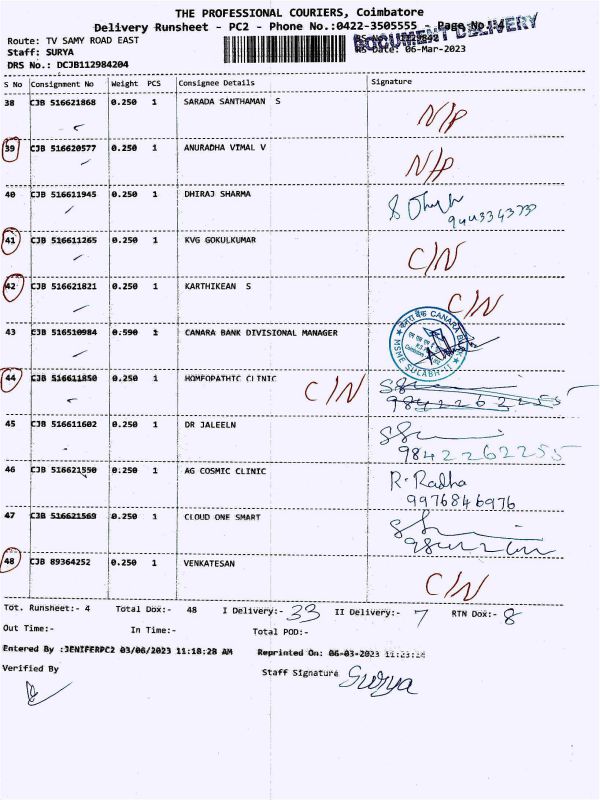 THE PROFESSIONAL COURIERS, Coimbatore
Delivery Runsheet - PC2 - Phone No.:0422-3505555 - Page No.1.4
DOCUMENT DELIVERY
Route: TV SAMY ROAD EAST
Staff: SURYA
RS Date: 06-Mar-2023
DRS No.: DCJB112984204
S No Consignment No Weight PCS Consignee Details Signature
38 CJB 516621868 0.250 1 SARADA SANTHAMAN S N/P
39 CJB 516620577 0.250 1 ANURADHA VIMAL V N/P
40 CJB 516611945 0.250 1 DHIRAJ SHARMA
41 CJB 516611265 0.250 1 KVG GOKULKUMAR C/N
42 CJB 516621821 0.250 1 KARTHIKEAN S C/N
43 CJB 516510984 0.590 1 CANARA BANK DIVISIONAL MANAGER
CANARA BANK
MSME SULABH-II
44 CJB 516611850 0.250 1 HOMEOPATHIC CLINIC C/N
9842262255
45 CJB 516611602 0.250 1 DR JALEELN
9842262255
46 CJB 516621550 0.250 1 AG COSMIC CLINIC R. Radha
9976846976
47 CJB 516621569 0.250 1 CLOUD ONE SMART
48 CJB 89364252 0.250 1 VENKATESAN C/N
Tot. Runsheet:- 4 Total Dox:- 48 I Delivery:- 33 II Delivery:- 7 RTN Dox:- 8
Out Time:- In Time:- Total POD:-
Entered By :JENIFERPC2 03/06/2023 11:18:28 AM Reprinted On: 06-03-2023
Verified By Staff Signature Surya